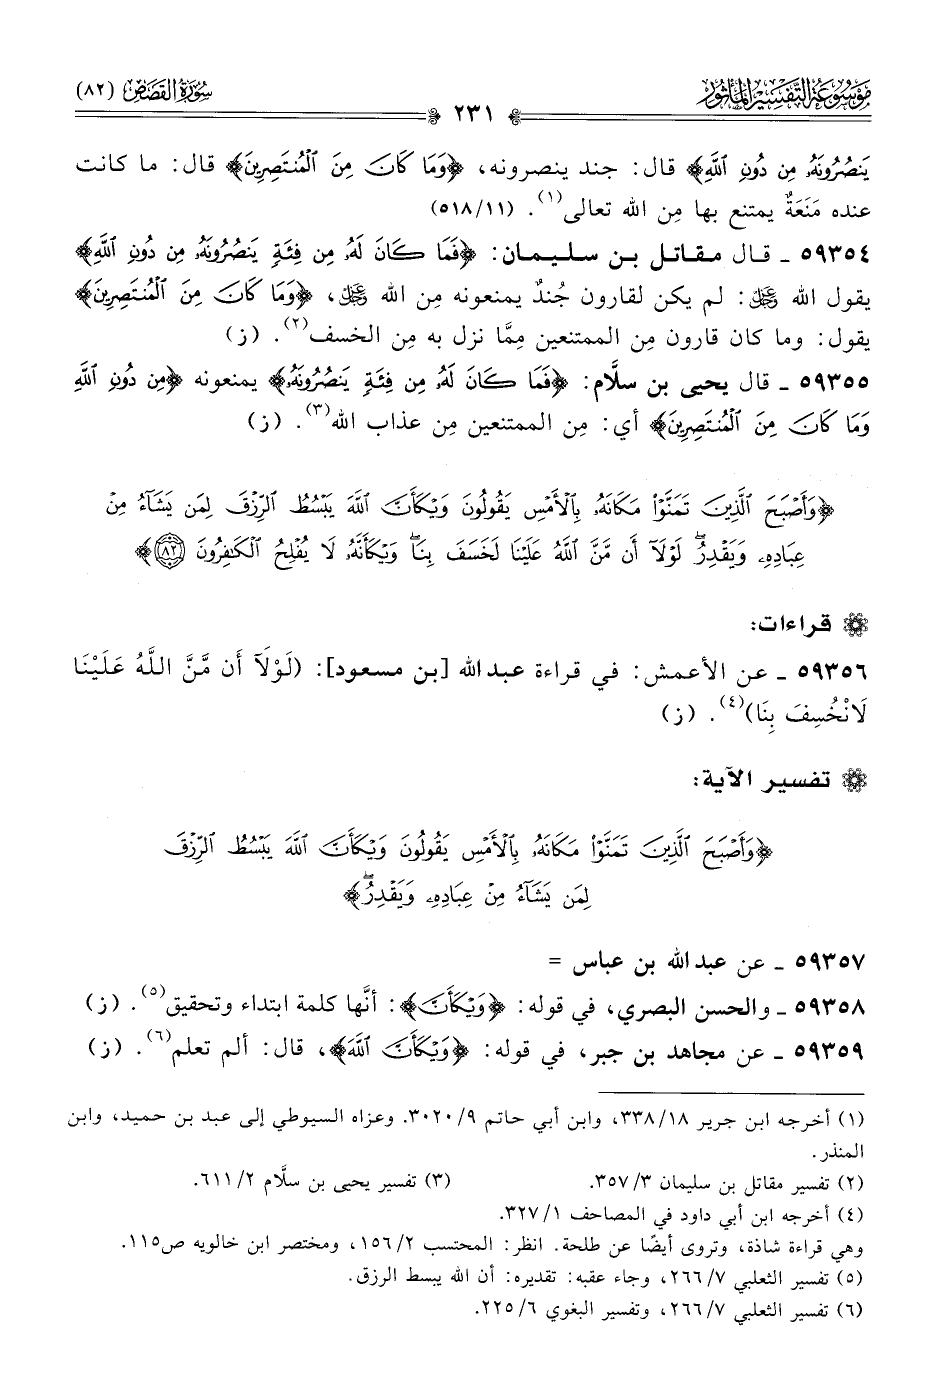 مَوْسُوعَةُ التَّفْسِيرِ المَأْثُورِ
سُورَةُ القَصَصِ (٨٢)
٢٣١
يَنصُرُونَهُۥ مِن دُونِ ٱللَّهِ﴾ قال: جند ينصرونه، ﴿وَمَا كَانَ مِنَ ٱلْمُنتَصِرِينَ﴾ قال: ما كانت
عنده مَنَعَةٌ يمتنع بها مِن الله تعالى(١). (٥١٨/١١)
٥٩٣٥٤ ـ قال مقاتل بن سليمان: ﴿فَمَا كَانَ لَهُۥ مِن فِئَةٍ يَنصُرُونَهُۥ مِن دُونِ ٱللَّهِ﴾
يقول الله ﷻ: لم يكن لقارون جُندٌ يمنعونه مِن الله ﷻ، ﴿وَمَا كَانَ مِنَ ٱلْمُنتَصِرِينَ﴾
يقول: وما كان قارون مِن الممتنعين مِمَّا نزل به مِن الخسف(٢). (ز)
٥٩٣٥٥ ـ قال يحيى بن سلَّام: ﴿فَمَا كَانَ لَهُۥ مِن فِئَةٍ يَنصُرُونَهُۥ﴾ يمنعونه ﴿مِن دُونِ ٱللَّهِ
وَمَا كَانَ مِنَ ٱلْمُنتَصِرِينَ﴾ أي: مِن الممتنعين مِن عذاب الله(٣). (ز)
﴿وَأَصْبَحَ ٱلَّذِينَ تَمَنَّوْا۟ مَكَانَهُۥ بِٱلْأَمْسِ يَقُولُونَ وَيْكَأَنَّ ٱللَّهَ يَبْسُطُ ٱلرِّزْقَ لِمَن يَشَآءُ مِنْ
عِبَادِهِۦ وَيَقْدِرُ ۖ لَوْلَآ أَن مَّنَّ ٱللَّهُ عَلَيْنَا لَخَسَفَ بِنَا ۖ وَيْكَأَنَّهُۥ لَا يُفْلِحُ ٱلْكَٰفِرُونَ ٨٢﴾
قراءات:
٥٩٣٥٦ ـ عن الأعمش: في قراءة عبد الله [بن مسعود]: (لَوْلَآ أَن مَّنَّ اللَّهُ عَلَيْنَا
لَانْخُسِفَ بِنَا)(٤). (ز)
تفسير الآية:
﴿وَأَصْبَحَ ٱلَّذِينَ تَمَنَّوْا۟ مَكَانَهُۥ بِٱلْأَمْسِ يَقُولُونَ وَيْكَأَنَّ ٱللَّهَ يَبْسُطُ ٱلرِّزْقَ
لِمَن يَشَآءُ مِنْ عِبَادِهِۦ وَيَقْدِرُ ۖ﴾
٥٩٣٥٧ ـ عن عبد الله بن عباس =
٥٩٣٥٨ ـ والحسن البصري، في قوله: ﴿وَيْكَأَنَّ﴾: أنَّها كلمة ابتداء وتحقيق(٥). (ز)
٥٩٣٥٩ ـ عن مجاهد بن جبر، في قوله: ﴿وَيْكَأَنَّ ٱللَّهَ﴾، قال: ألم تعلم(٦). (ز)
(١) أخرجه ابن جرير ١٨/ ٣٣٨، وابن أبي حاتم ٩/ ٣٠٢٠. وعزاه السيوطي إلى عبد بن حميد، وابن
المنذر.
(٢) تفسير مقاتل بن سليمان ٣/ ٣٥٧. (٣) تفسير يحيى بن سلَّام ٢/ ٦١١.
(٤) أخرجه ابن أبي داود في المصاحف ١/ ٣٢٧.
وهي قراءة شاذة، وتروى أيضًا عن طلحة. انظر: المحتسب ٢/ ١٥٦، ومختصر ابن خالويه ص١١٥.
(٥) تفسير الثعلبي ٧/ ٢٦٦، وجاء عقبه: تقديره: أن الله يبسط الرزق.
(٦) تفسير الثعلبي ٧/ ٢٦٦، وتفسير البغوي ٦/ ٢٢٥.